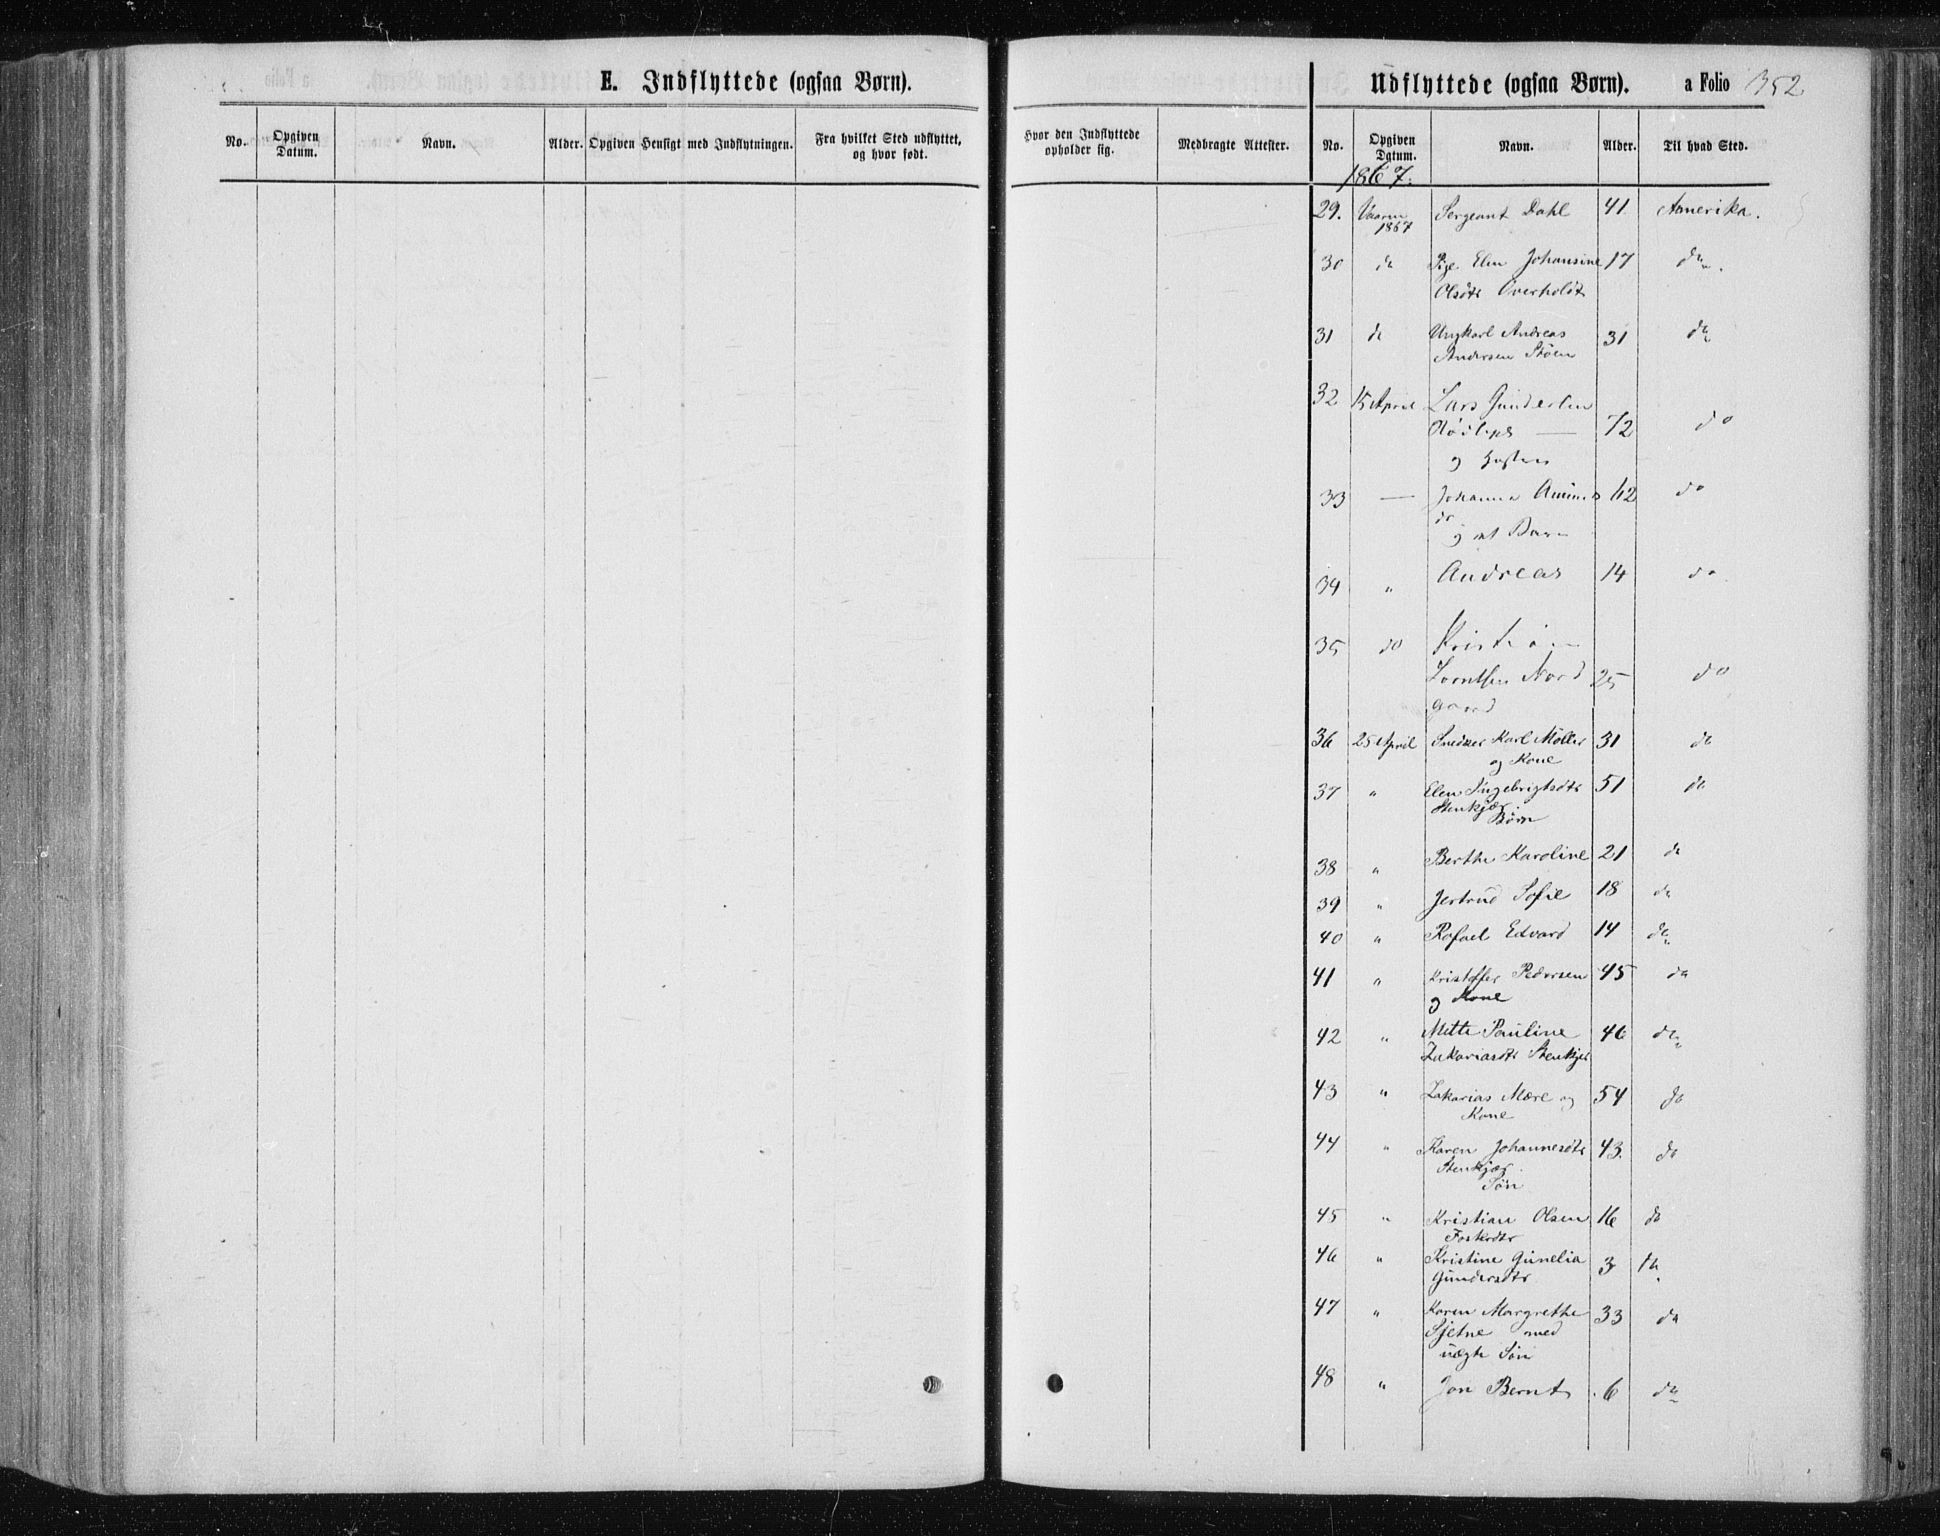 E. Indflyttede (ogsaa Børn).
No.
Opgiven
Datum.
Navn.
Alder.
Opgiven Hensigt med Indflytningen.
Fra hvilket Sted udflyttet,
og hvor født.
Hvor den Indflyttede
opholder sig.
Medbragte Attester.
Udflyttede (ogsaa Børn). a Folio 352
No.
Opgiven
Datum.
Navn.
Alder.
Til hvad Sted.
1867.
29. Vaaren Sergeant Dahl 41 Amerika.
1867
30 do Pige Elen Johansine 17 do
Olsdtr Overholdt
31 do Ungkarl Andreas 31 do
Andersen Støen
32 15 April Lars Gundersen
72 do
og Hustru
33 — Johanna 62 do
do
og et Barn
34 " Andreas 14 do
35 do Kristian
Lorntsen Nord 25 do
gaard
36 25 April Snedker Karl Møller 31 do
og Kone
37 " Elen Ingebrigtsdtr 51 do
Stenkjær
Børn
38 " Berthe Karoline 21 do
39 " Jertrud Sofie 18 do
40 " Rafael Edvard 14 do
41 " Kristoffer Pedersen 45 do
og Kone
42 " Mette Pauline 46 do
Zakariasdtr Stenkjær
43 " Zakarias Mære og 54 do
Kone
44 " Karen Johannesdtr 43 do
Stenkjær
Søn
45 " Kristian Olsen 16 do
46 " Kristine Gunelia 3 do
Gundersdtr
47 " Karen Margrethe 33 do
Sjetne med
uægte Søn
48 " Jon Bernt 6 do